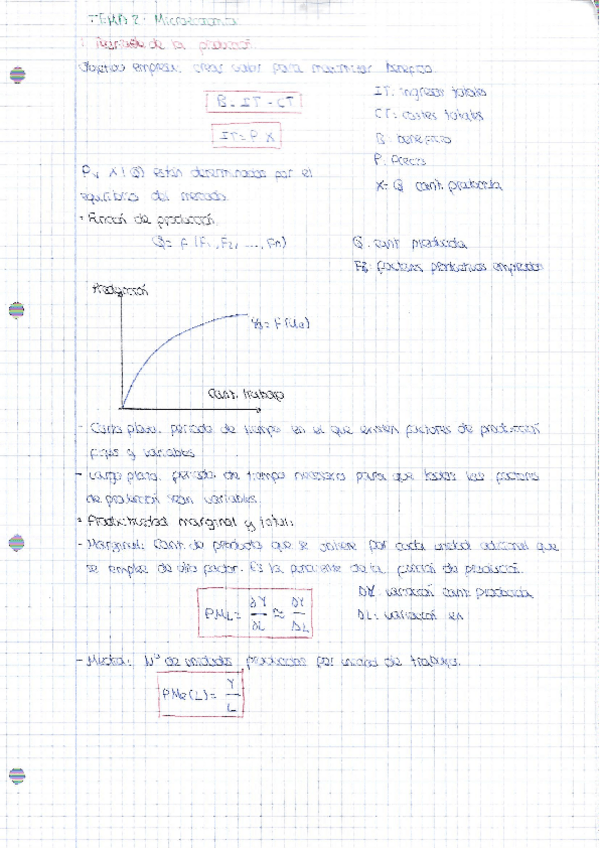 TEMA 2: Microeconomía
1. Teoría de la producció.
Objetivo empresa: crear valor para maximizar beneficio.
B = IT - CT
IT = P · X
IT: ingresos totales
CT: costes totales
B: beneficio
P: Precio
X = Q cant. producida
P y X (Q) están determinados por el
equilibrio del mercado.
· Función de producción.
Q = F (F1, F2, ..., Fn)
Q: cant producida
Fi: factores productivos empleados
Producción
Cant. trabajo
- Corto plazo: periodo de tiempo en el que existen factores de producción
fijos y variables
- Largo plazo: periodo de tiempo necesario para que todos los factores
de producción sean variables.
· Productividad marginal y total:
- Marginal: Cant. de producto que se obtiene por cada unidad adicional que
se emplee de dicho factor. Es la pendiente de la función de producció.
PML = ∂Y/∂L ≈ ΔY/ΔL
ΔY: variación cant. producida
ΔL: variación en
- Media: Nº de unidades producidas por unidad de trabajo.
PMe(L) = Y/L